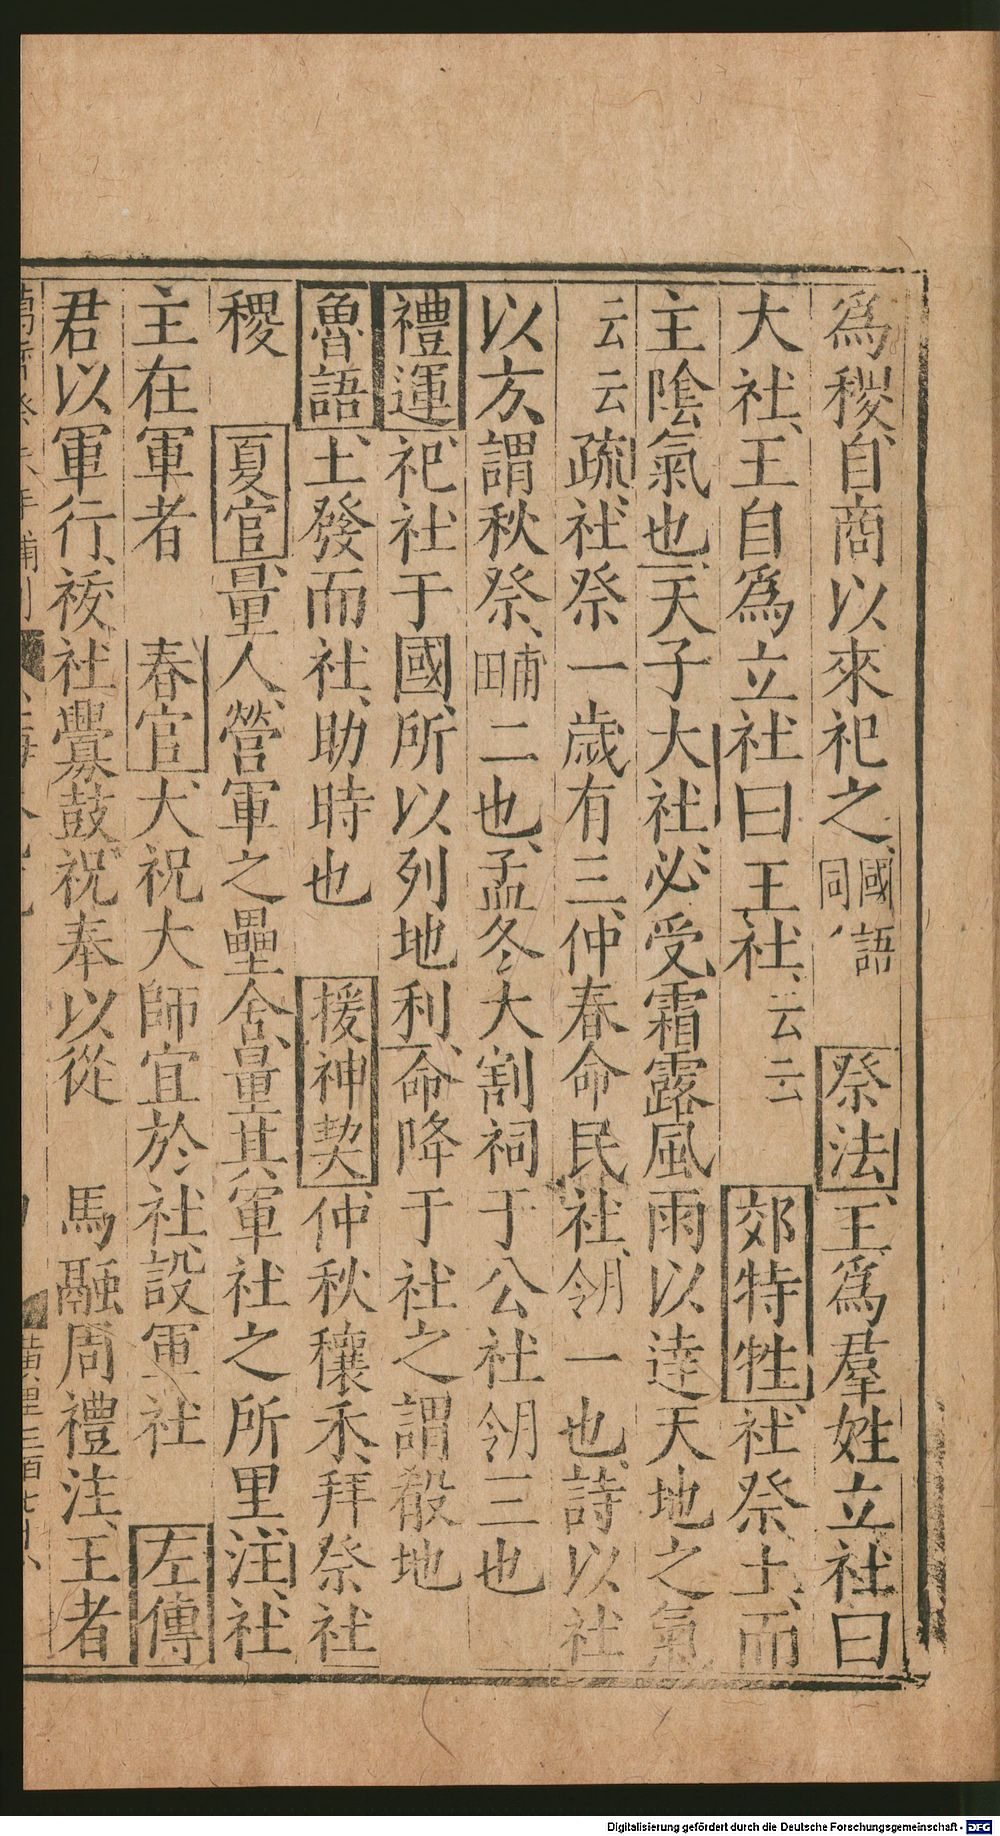 為稷自商以來祀之國語同祭法王為羣姓立社曰
大社王自為立社曰王社云云郊特牲社祭土而
主陰氣也天子大社必受霜露風雨以達天地之氣
云云疏社祭一歲有三仲春命民社例一也詩以社
以方謂秋祭甫田二也孟冬大割祠于公社例三也
禮運祀社于國所以列地利命降于社之謂殽地
魯語土發而社助時也援神契仲秋穫禾拜祭社
稷夏官量人營軍之壘舍量其軍社之所里注社
主在軍者春官大祝大師宜於社設軍社左傳
君以軍行祓社釁鼓祝奉以從馬融周禮注王者
Digitalisierung gefördert durch die Deutsche Forschungsgemeinschaft - DFG